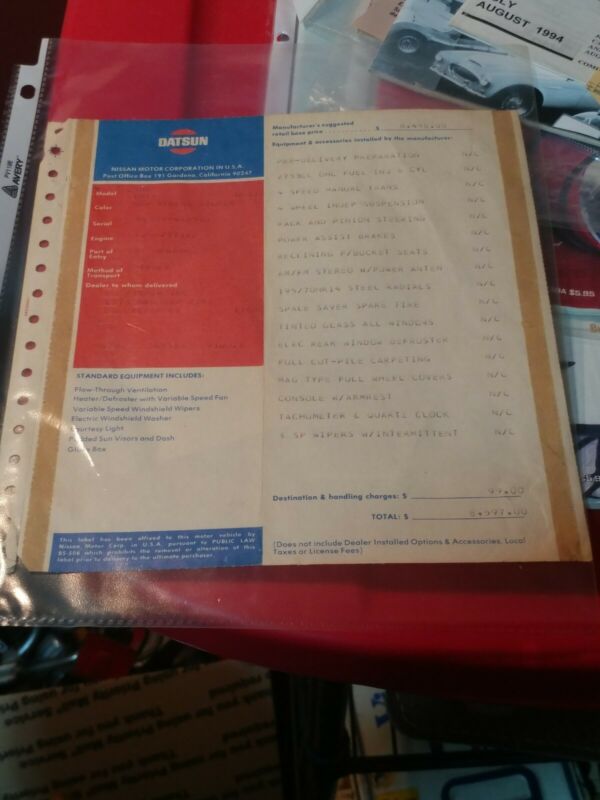 JULY
AUGUST 1994
AVERY
DATSUN
NISSAN MOTOR CORPORATION IN U.S.A.
Post Office Box 191 Gardena, California 90247
Model
Color
Serial
Engine
Port of
Entry
Method of
Transport
Dealer to whom delivered
STANDARD EQUIPMENT INCLUDES:
Flow-Through Ventilation
Heater/Defroster with Variable Speed Fan
Variable Speed Windshield Wipers
Electric Windshield Washer
Courtesy Light
Padded Sun Visors and Dash
Glove Box
This label has been affixed to this motor vehicle by
Nissan Motor Corp. in U.S.A. pursuant to PUBLIC LAW
85-506 which prohibits the removal or alteration of this
label prior to delivery to the ultimate purchaser.
Manufacturer's suggested
retail base price $ 8,498.00
Equipment & accessories installed by the manufacturer:
PRE-DELIVERY PREPARATION N/C
FUEL INJ 6 CYL N/C
SPEED MANUAL TRANS N/C
4 WHEEL INDEP SUSPENSION N/C
RACK AND PINION STEERING N/C
POWER ASSIST BRAKES N/C
RECLINING F/BUCKET SEATS N/C
AM/FM STEREO W/POWER ANTEN N/C
195/70HR14 STEEL RADIALS N/C
SPACE SAVER SPARE TIRE N/C
TINTED GLASS ALL WINDOWS N/C
ELEC REAR WINDOW DEFROSTER N/C
FULL CUT-PILE CARPETING N/C
MAG TYPE FULL WHEEL COVERS N/C
CONSOLE W/ARMREST N/C
TACHOMETER & QUARTZ CLOCK N/C
SP WIPERS W/INTERMITTENT N/C
Destination & handling charges: $ 99.00
TOTAL: $ 8,597.00
(Does not include Dealer Installed Options & Accessories, Local
Taxes or License Fees)
$5.95
Thank you for using Priority Mail Service